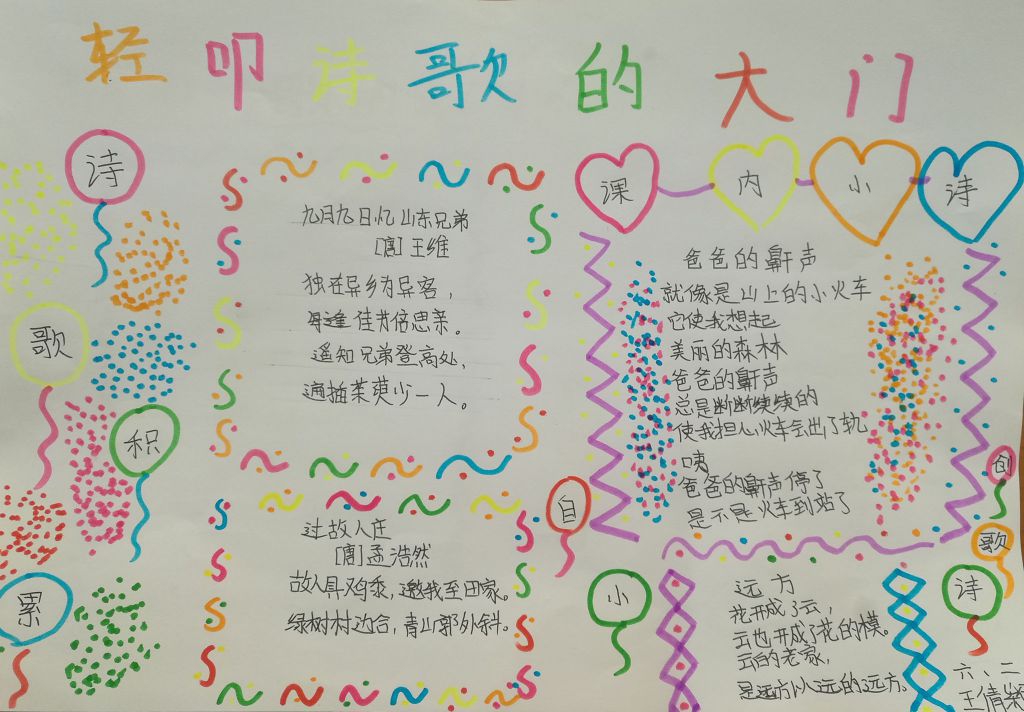 轻叩诗歌的大门
诗
歌
积
累
九月九日忆山东兄弟
[唐]王维
独在异乡为异客，
每逢佳节倍思亲。
遥知兄弟登高处，
遍插茱萸少一人。
过故人庄
[唐]孟浩然
故人具鸡黍，邀我至田家。
绿树村边合，青山郭外斜。
课内小诗
爸爸的鼾声
就像是山上的小火车
它使我想起
美丽的森林
爸爸的鼾声
总是断断续续的
使我担心火车会出了轨
咦
爸爸的鼾声停了
是不是火车到站了
自
创
小
诗
歌
远方
花开成了云，
云也开成了花的模。
云的老家，
是远方以远的远方。
六、二
王倩